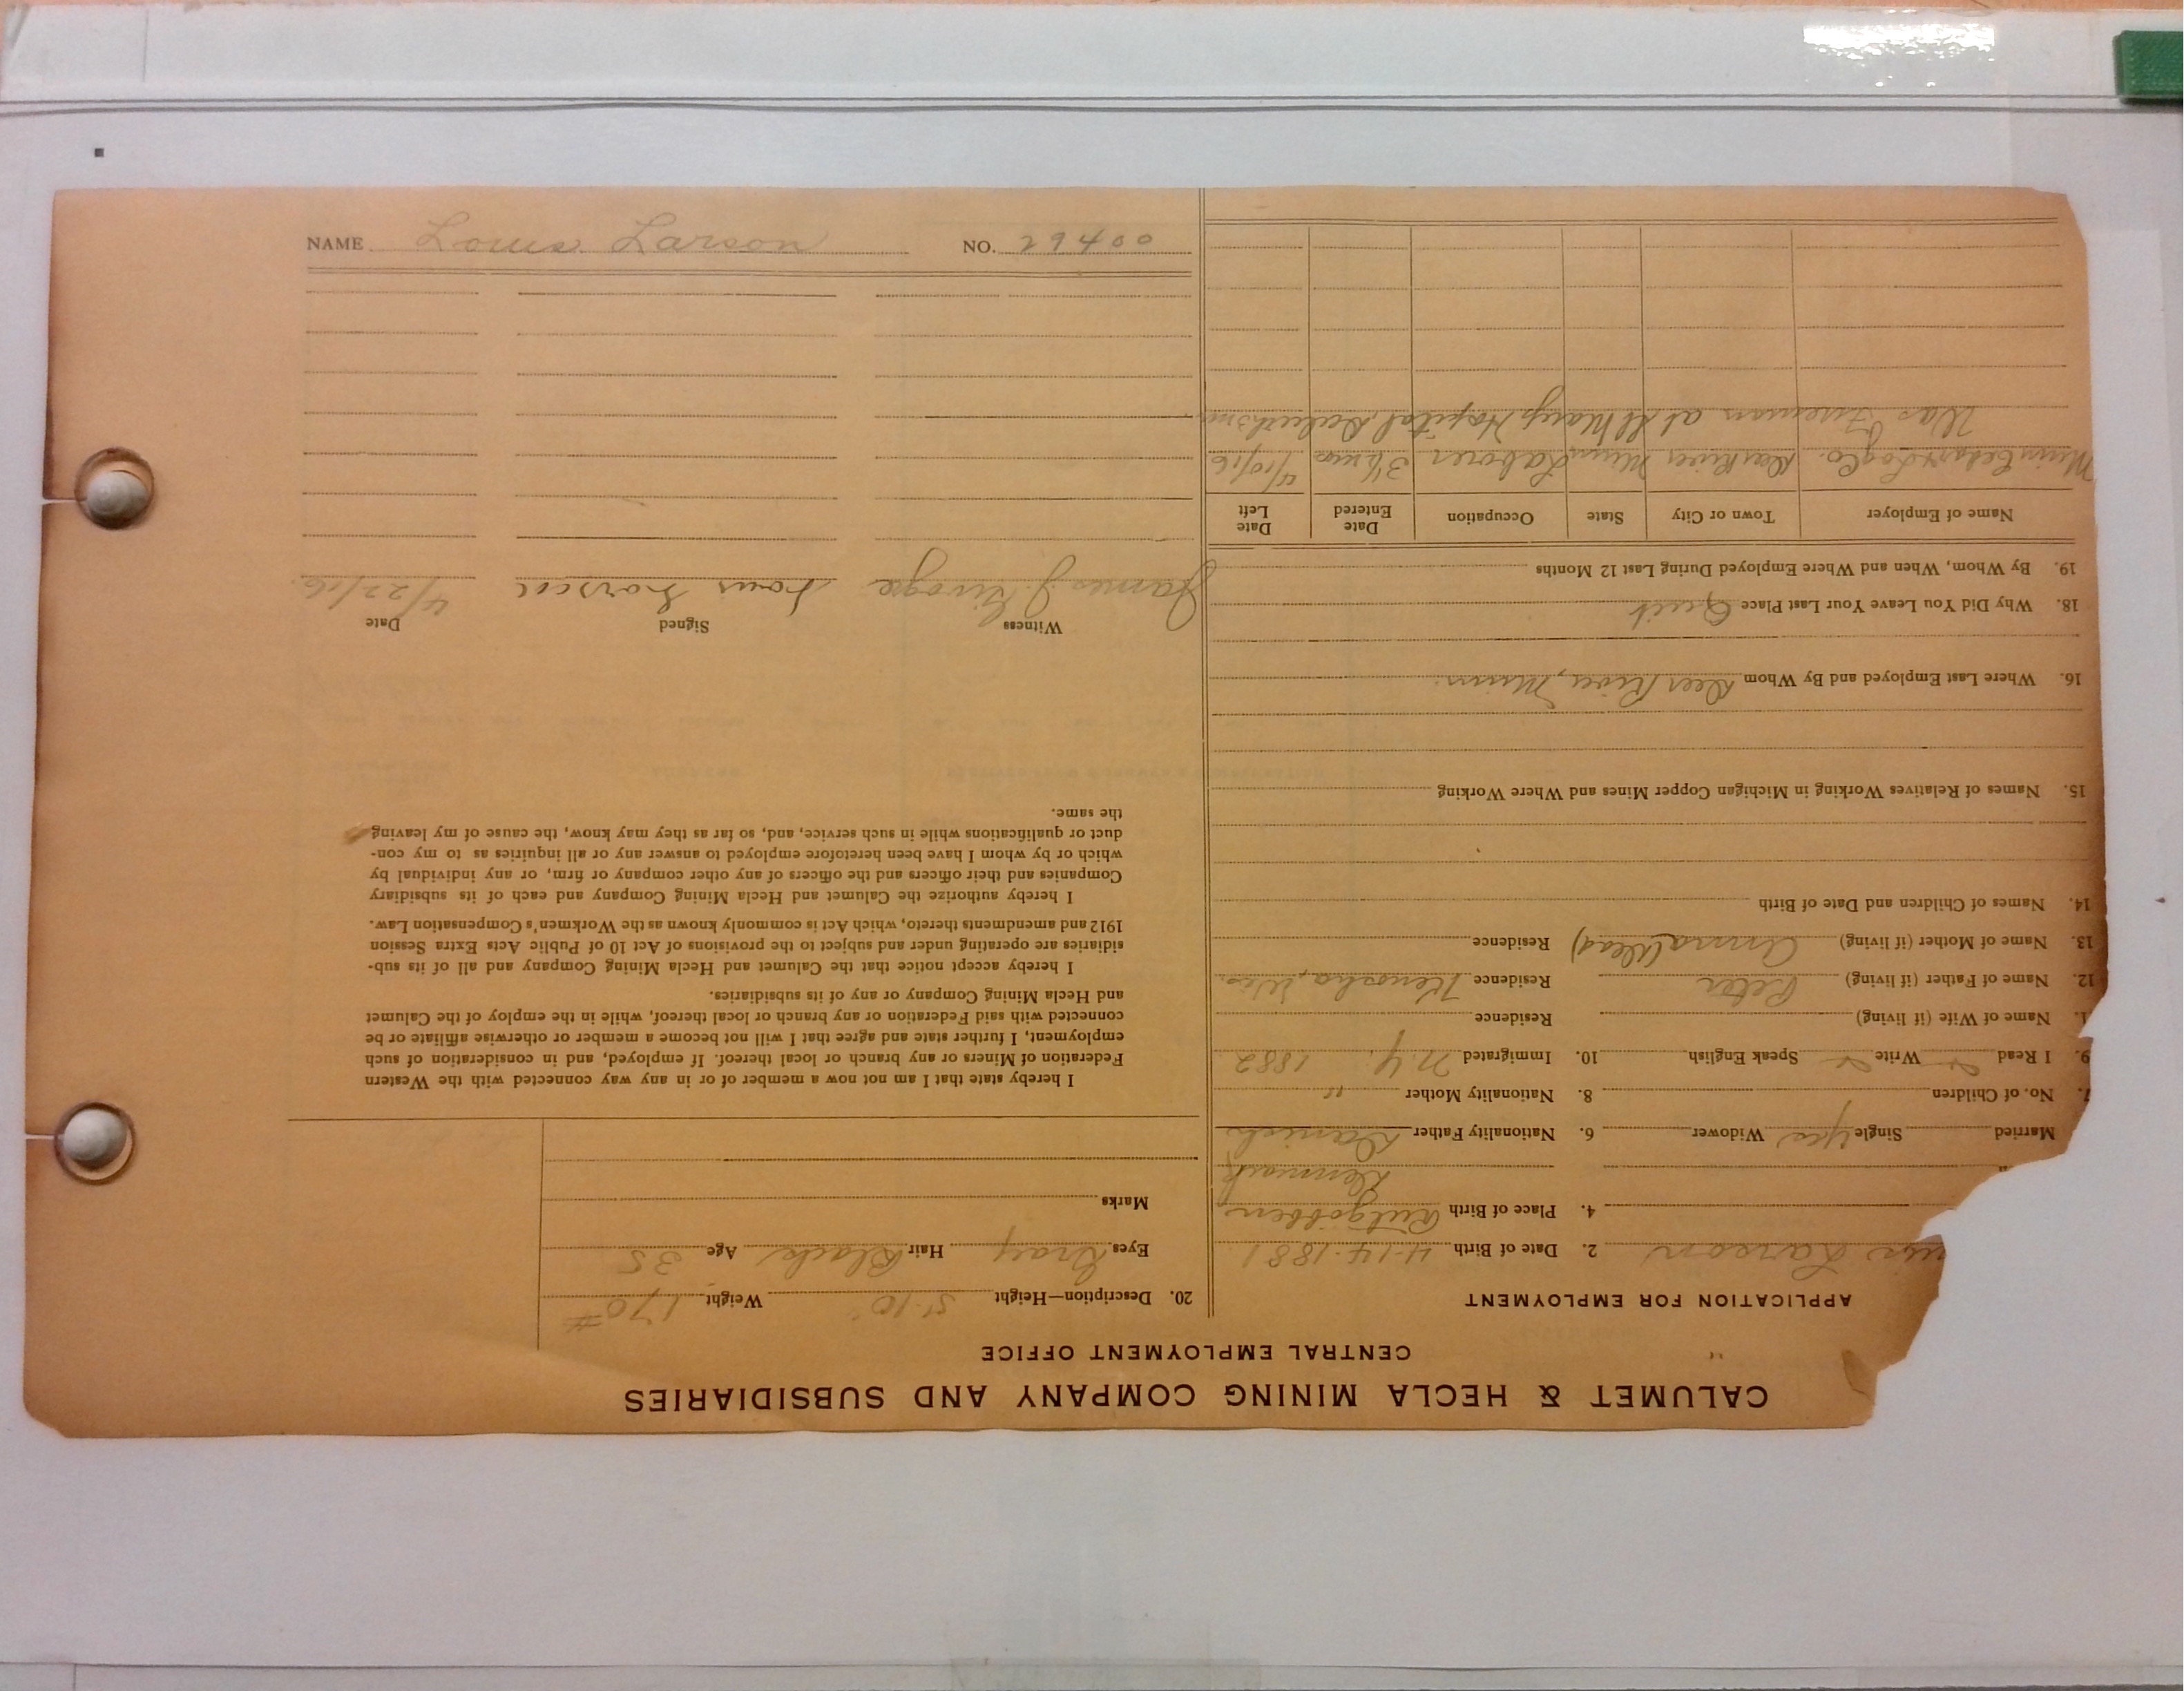 CALUMET & HECLA MINING COMPANY AND SUBSIDIARIES
CENTRAL EMPLOYMENT OFFICE
APPLICATION FOR EMPLOYMENT
Larson 2. Date of Birth 4-14-1881
4. Place of Birth
Denmark
Married Single Yes Widower 6. Nationality Father Danish
7. No. of Children 8. Nationality Mother "
9. I Read Write Speak English 10. Immigrated N.Y. 1882
Name of Wife (if living) Residence
12. Name of Father (if living) Peter Residence Kenosha, Wis.
13. Name of Mother (if living) Anna (Dead) Residence
14. Names of Children and Date of Birth
15. Names of Relatives Working in Michigan Copper Mines and Where Working
16. Where Last Employed and By Whom Deer River, Minn.
18. Why Did You Leave Your Last Place Quit
19. By Whom, When and Where Employed During Last 12 Months
Name of Employer Town or City State Occupation Date Entered Date Left
Minn Cedar & Log Co. Deer River Minn Laborer 3½ mos 4/10/16
Was Fireman at St Marys Hospital Duluth
20. Description—Height 5'-10" Weight 170#
Eyes Gray Hair Black Age 35
Marks
I hereby state that I am not now a member of or in any way connected with the Western
Federation of Miners or any branch or local thereof. If employed, and in consideration of such
employment, I further state and agree that I will not become a member or otherwise affiliate or be
connected with said Federation or any branch or local thereof, while in the employ of the Calumet
and Hecla Mining Company or any of its subsidiaries.
I hereby accept notice that the Calumet and Hecla Mining Company and all of its sub-
sidiaries are operating under and subject to the provisions of Act 10 of Public Acts Extra Session
1912 and amendments thereto, which Act is commonly known as the Workmen's Compensation Law.
I hereby authorize the Calumet and Hecla Mining Company and each of its subsidiary
Companies and their officers and the officers of any other company or firm, or any individual by
which or by whom I have been heretofore employed to answer any or all inquiries as to my con-
duct or qualifications while in such service, and, so far as they may know, the cause of my leaving
the same.
Witness Signed Date
James J. Louis Larson 4/22/16.
NAME Louis Larson NO. 29400